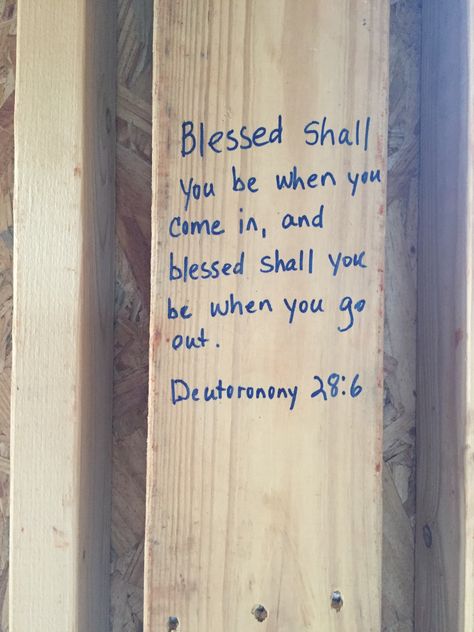 Blessed Shall
you be when you
come in, and
blessed shall you
be when you go
out.
Deutoronony 28:6